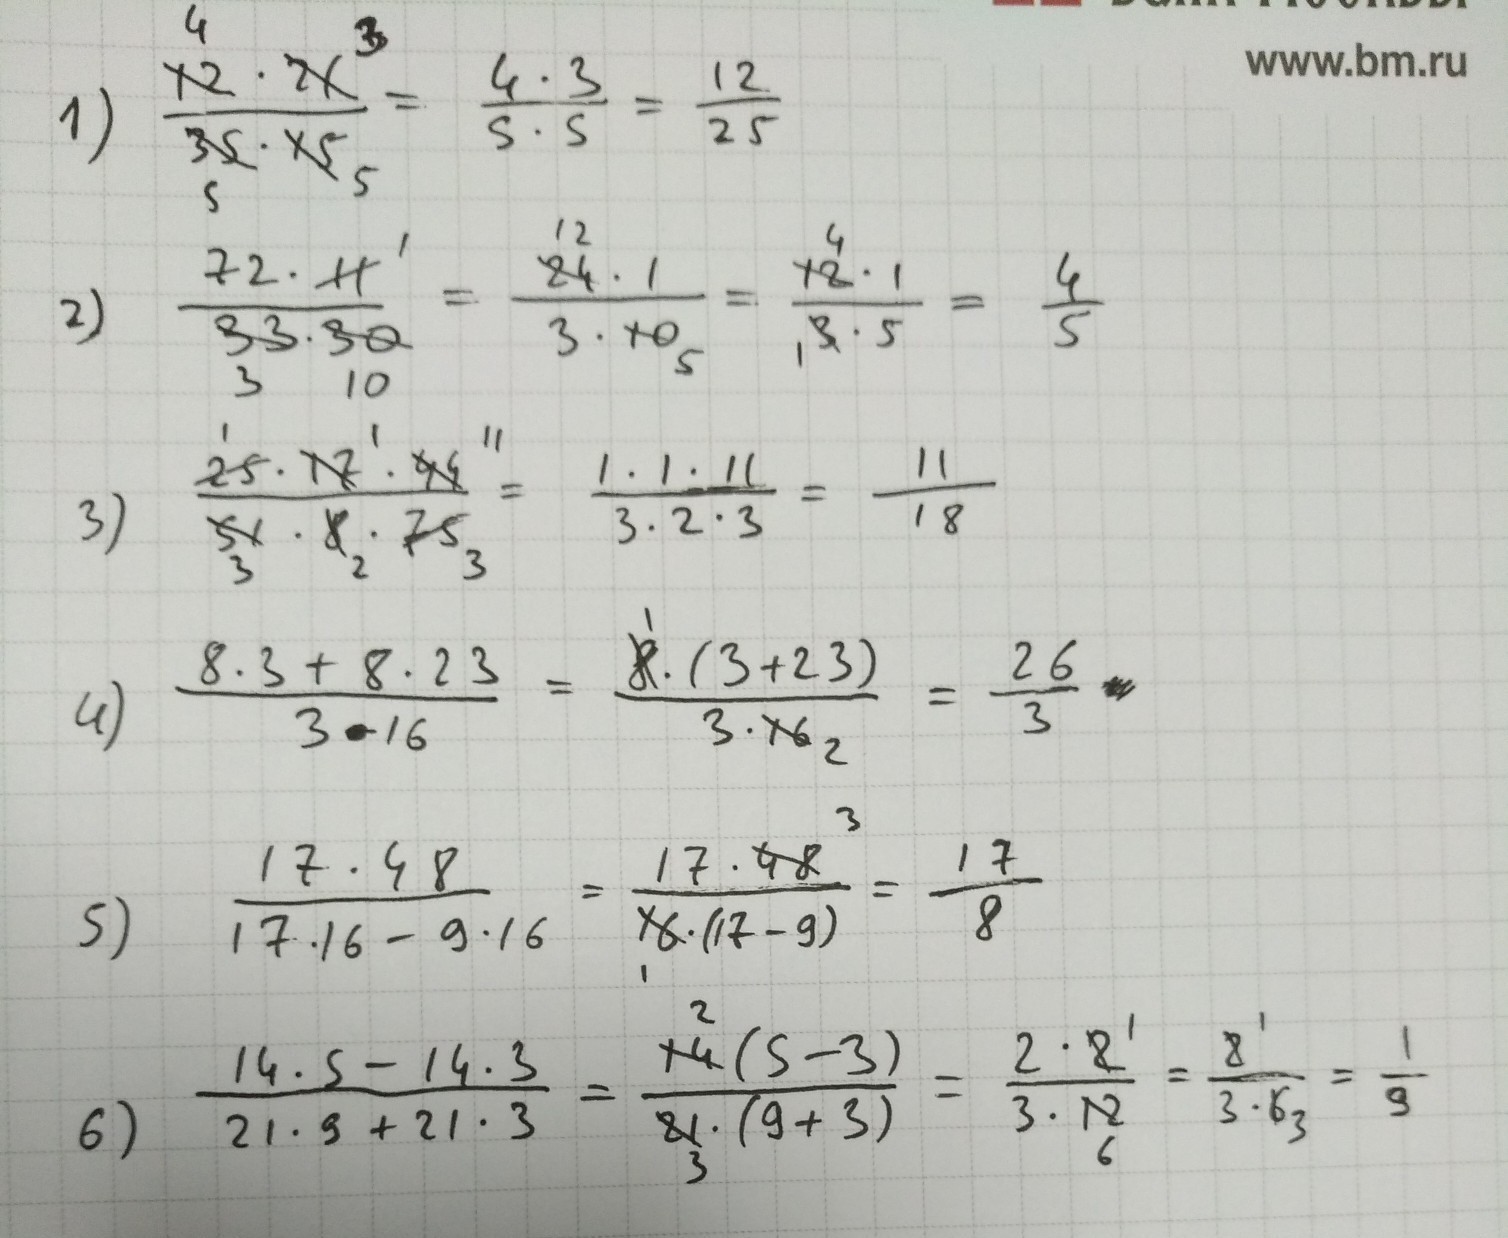 www.bm.ru
1) (12 · 21)/(35 · 15) = (4 · 3)/(5 · 5) = 12/25
2) (72 · 11)/(33 · 30) = (24 · 1)/(3 · 10) = (12 · 1)/(3 · 5) = 4/5
3) (25 · 17 · 44)/(51 · 8 · 75) = (1 · 1 · 11)/(3 · 2 · 3) = 11/18
4) (8 · 3 + 8 · 23)/(3 · 16) = (8 · (3 + 23))/(3 · 16) = 26/3
5) (17 · 48)/(17 · 16 - 9 · 16) = (17 · 48)/(16 · (17 - 9)) = 17/8
6) (14 · 5 - 14 · 3)/(21 · 9 + 21 · 3) = (14 (5 - 3))/(21 · (9 + 3)) = (2 · 2)/(3 · 12) = 2/(3 · 6) = 1/9